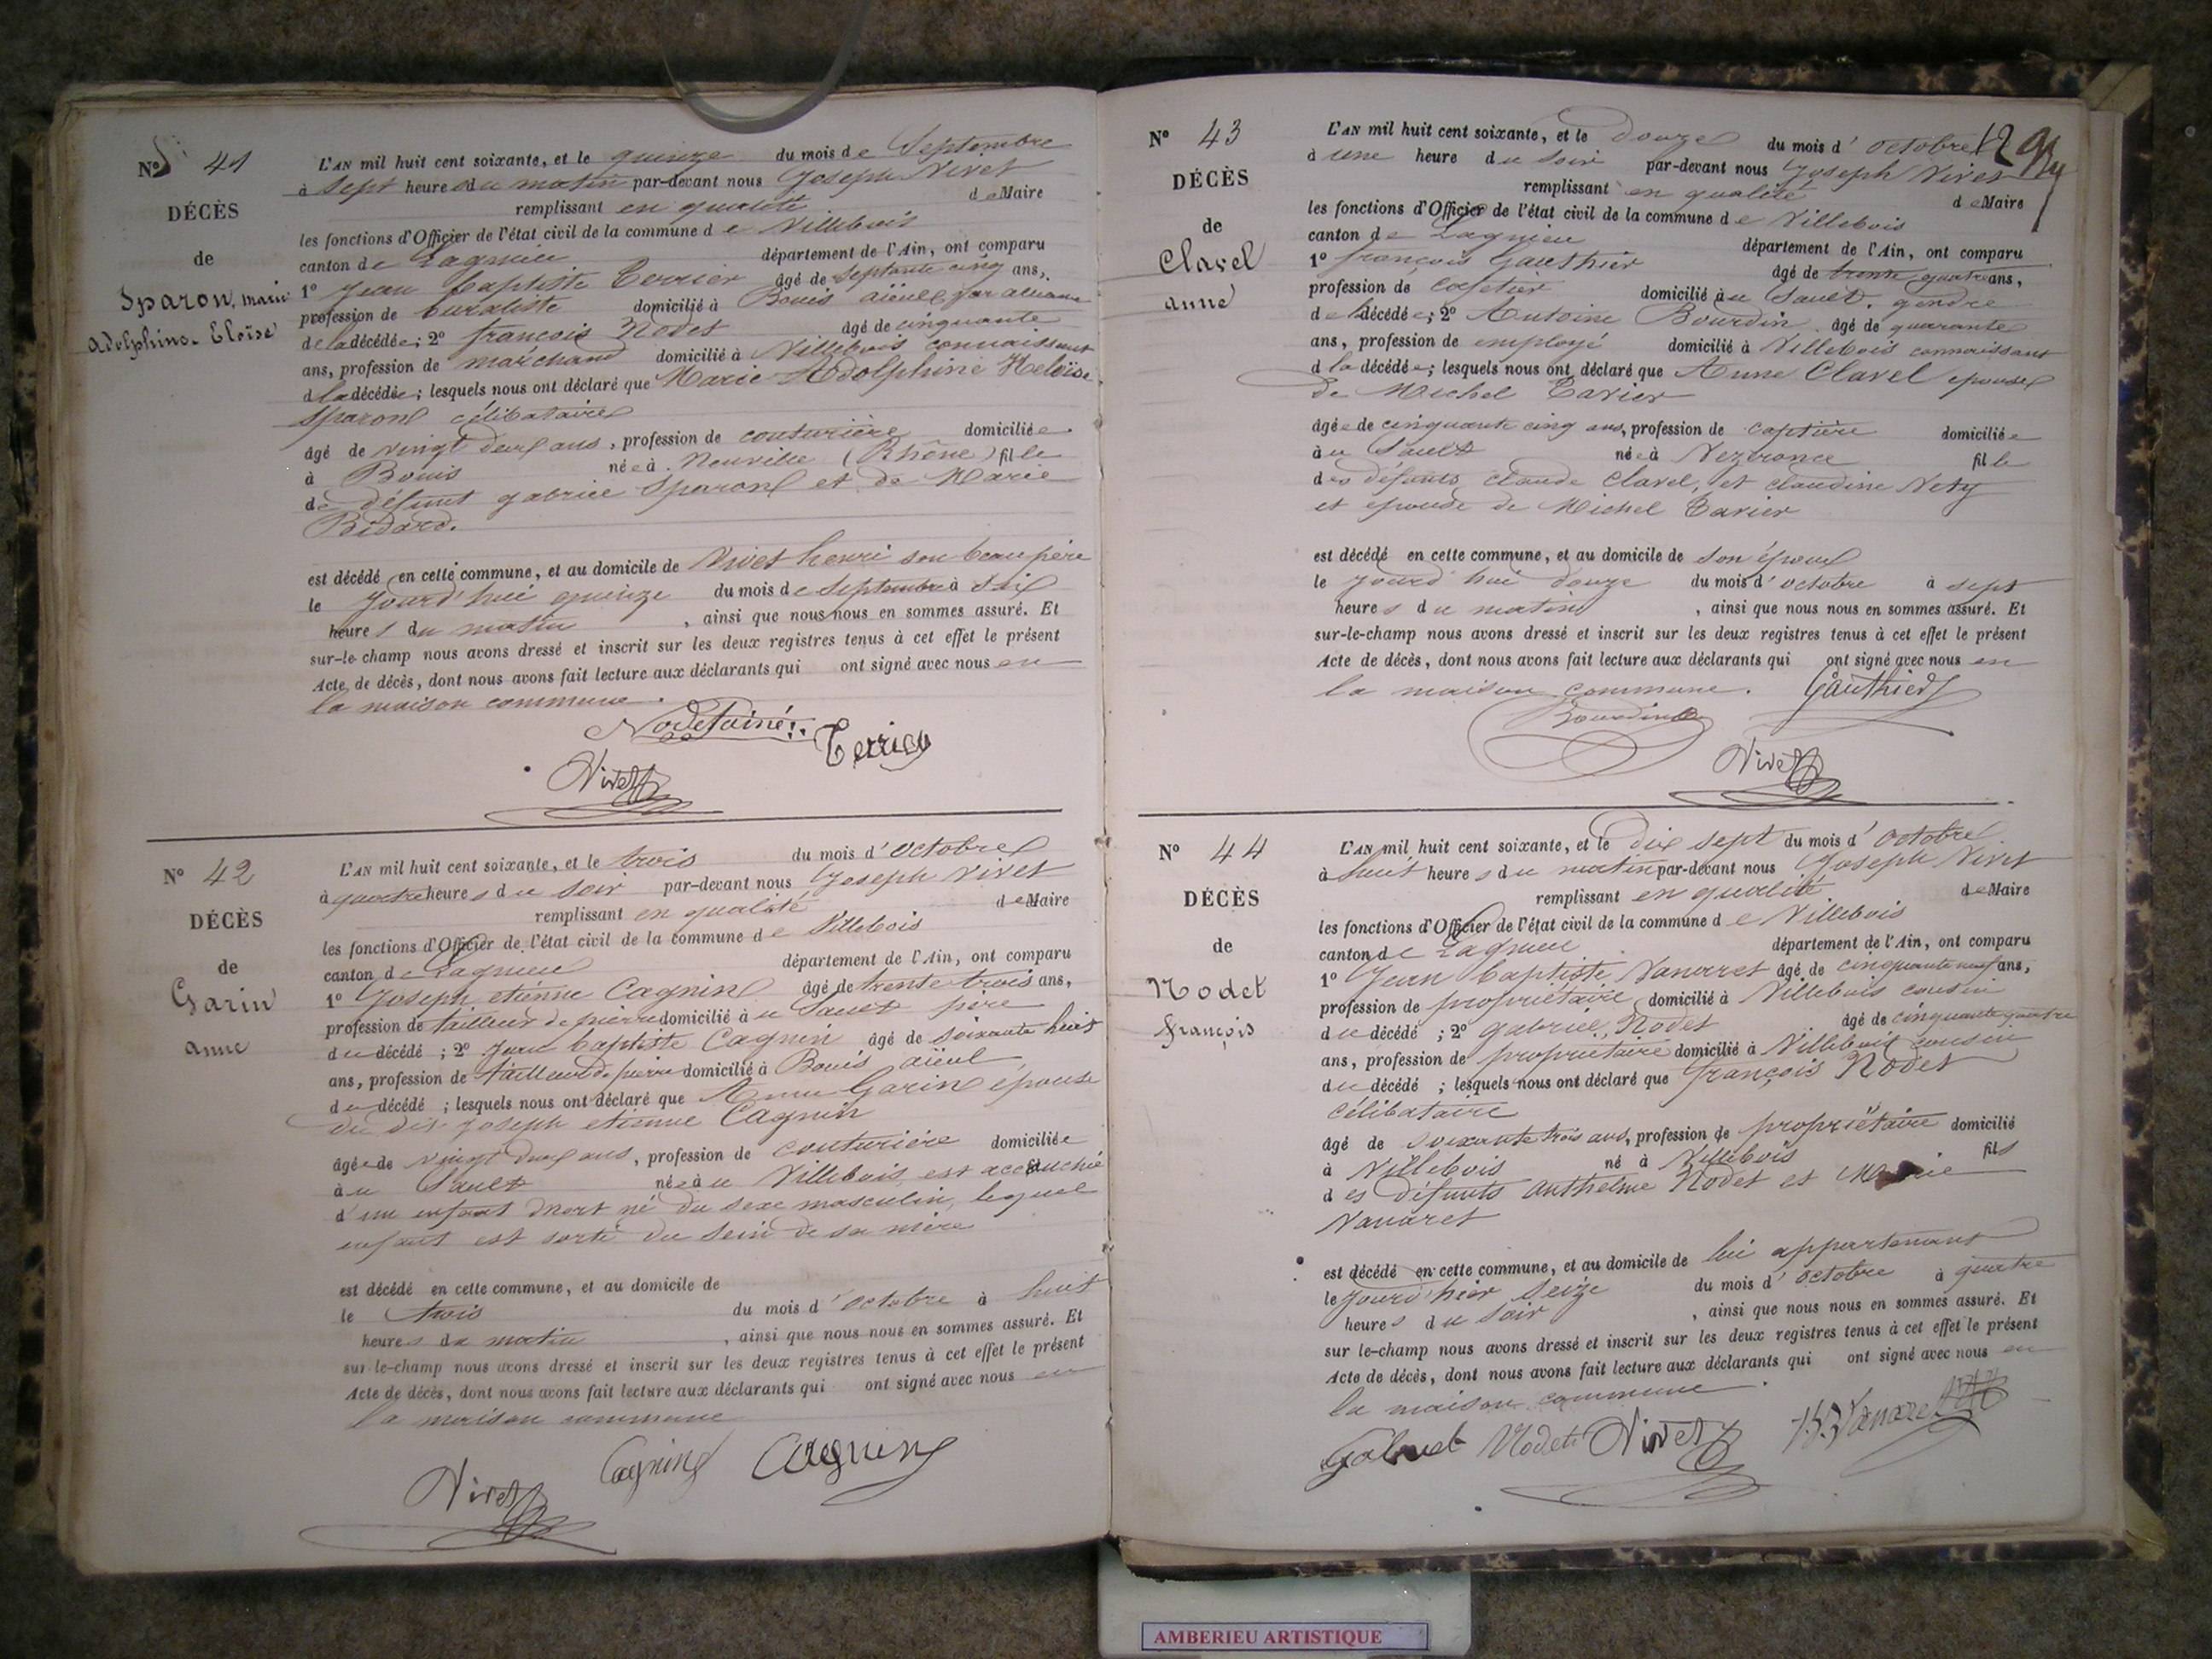 N° 41
DÉCÈS
de
Sparon, marie
adolphine-Eloïse
L'AN mil huit cent soixante, et le quinze du mois de Septembre
à sept heures du matin par-devant nous Joseph Vivet
remplissant en qualité de Maire
les fonctions d'Officier de l'état civil de la commune de Villebois
canton de Lagnieu département de l'Ain, ont comparu
1° Jean baptiste Terrier âgé de septante cinq ans,
profession de buraliste domicilié à Bouis aïeul par alliance
de la décédée; 2° françois Nodet âgé de cinquante
ans, profession de marchand domicilié à Villebois connaissant
d la décédée; lesquels nous ont déclaré que Marie Adolphine Heloïse
Sparon célibataire
âgé de vingt deux ans, profession de couturière domiciliée
à Bouis née à Neuville (Rhône) fille
de défunt gabriel Sparon et de Marie
Bedard.
est décédé en cette commune, et au domicile de Vivet henri son beau père
le jourd'hui quinze du mois de septembre à six
heures du matin, ainsi que nous nous en sommes assuré. Et
sur-le-champ nous avons dressé et inscrit sur les deux registres tenus à cet effet le présent
Acte de décès, dont nous avons fait lecture aux déclarants qui ont signé avec nous en
la maison commune.
Nodet ainé Terrier
Vivet
N° 42
DÉCÈS
de
Garin
anne
L'AN mil huit cent soixante, et le trois du mois d'octobre
à quatre heures du soir par-devant nous Joseph Vivet
remplissant en qualité de Maire
les fonctions d'Officier de l'état civil de la commune de Villebois
canton de Lagnieu département de l'Ain, ont comparu
1° Joseph etienne Cagnin âgé de trente trois ans,
profession de tailleur de pierre domicilié à u Sault père
du décédé; 2° Jean baptiste Cagnin âgé de soixante huit
ans, profession de tailleur de pierre domicilié à Bouis aïeul
du décédé; lesquels nous ont déclaré que Anne Garin epouse
du dit Joseph etienne Cagnin
âgée de vingt deux ans, profession de couturière domiciliée
à u Sault née à u Villebois, est accouchée
d'un enfant mort né du sexe masculin, lequel
enfant est sorti du sein de sa mère
est décédé en cette commune, et au domicile de
le trois du mois d'octobre à huit
heures du matin, ainsi que nous nous en sommes assuré. Et
sur-le-champ nous avons dressé et inscrit sur les deux registres tenus à cet effet le présent
Acte de décès, dont nous avons fait lecture aux déclarants qui ont signé avec nous en
la maison commune
Vivet Cagnin Cagnin
N° 43
DÉCÈS
de
Clavel
anne
L'AN mil huit cent soixante, et le douze du mois d'octobre
à une heure du soir par-devant nous Joseph Vivet
remplissant en qualité de Maire
les fonctions d'Officier de l'état civil de la commune de Villebois
canton de Lagnieu département de l'Ain, ont comparu
1° françois Gauthier âgé de trente quatre ans,
profession de cafetier domicilié au Sault, gendre
de la décédée; 2° Antoine Bourdin âgé de quarante
ans, profession de employé domicilié à Villebois connaissant
d la décédée; lesquels nous ont déclaré que Anne Clavel epouse
de Michel Tavier
âgée de cinquante cinq ans, profession de domiciliée
à u Sault née à Vezeronce fille
des défunts claude Clavel, et claudine Nety
et epouse de Michel Tavier
est décédé en cette commune, et au domicile de son époux
le jourd'hui douze du mois d'octobre à sept
heures du matin, ainsi que nous nous en sommes assuré. Et
sur-le-champ nous avons dressé et inscrit sur les deux registres tenus à cet effet le présent
Acte de décès, dont nous avons fait lecture aux déclarants qui ont signé avec nous en
la maison commune. Gauthier
Bourdin
Vivet
N° 44
DÉCÈS
de
Nodet
françois
L'AN mil huit cent soixante, et le dix sept du mois d'octobre
à huit heures du matin par-devant nous Joseph Vivet
remplissant en qualité de Maire
les fonctions d'Officier de l'état civil de la commune de Villebois
canton de Lagnieu département de l'Ain, ont comparu
1° Jean baptiste Vanaret âgé de cinquante neuf ans,
profession de propriétaire domicilié à Villebois cousin
du décédé; 2° gabriel Nodet âgé de cinquante quatre
ans, profession de propriétaire domicilié à Villebois cousin
du décédé; lesquels nous ont déclaré que françois Nodet
célibataire
âgé de soixante trois ans, profession de propriétaire domicilié
à Villebois né à Villebois fils
des défunts anthelme Nodet et Marie
Vanaret
est décédé en cette commune, et au domicile de lui appartenant
le jourd'hier seize du mois d'octobre à quatre
heures du soir, ainsi que nous nous en sommes assuré. Et
sur le-champ nous avons dressé et inscrit sur les deux registres tenus à cet effet le présent
Acte de décès, dont nous avons fait lecture aux déclarants qui ont signé avec nous en
la maison commune.
Gabriel Nodet Vivet Vanaret
AMBERIEU ARTISTIQUE